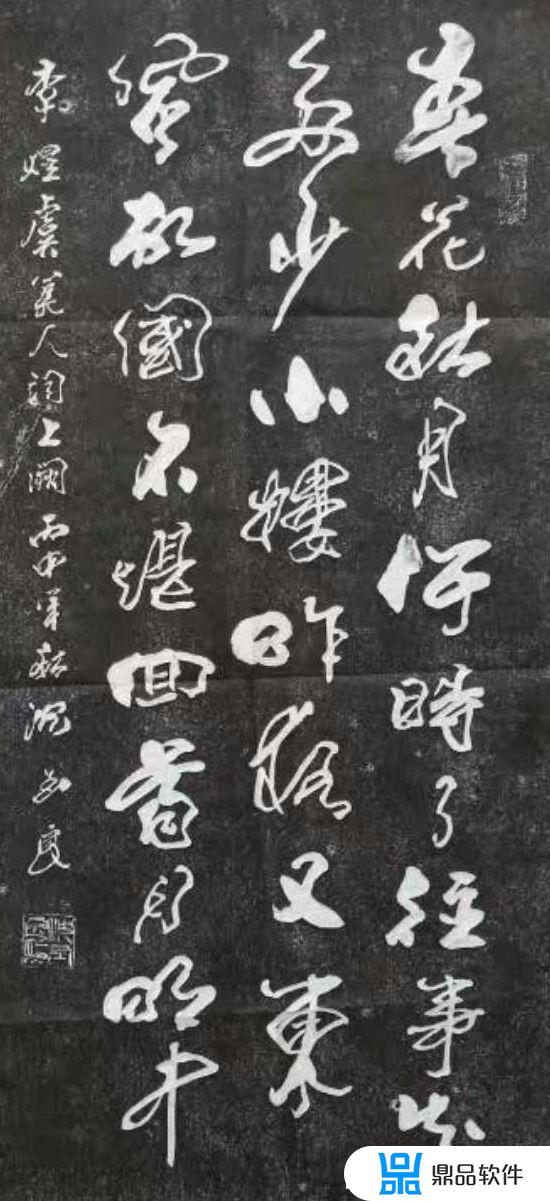 春花秋月何時了往事知
多少小樓昨夜又東
風故國不堪回首月明中
李煜虞美人詞上闋丙申年秋沈良
鼎品软件